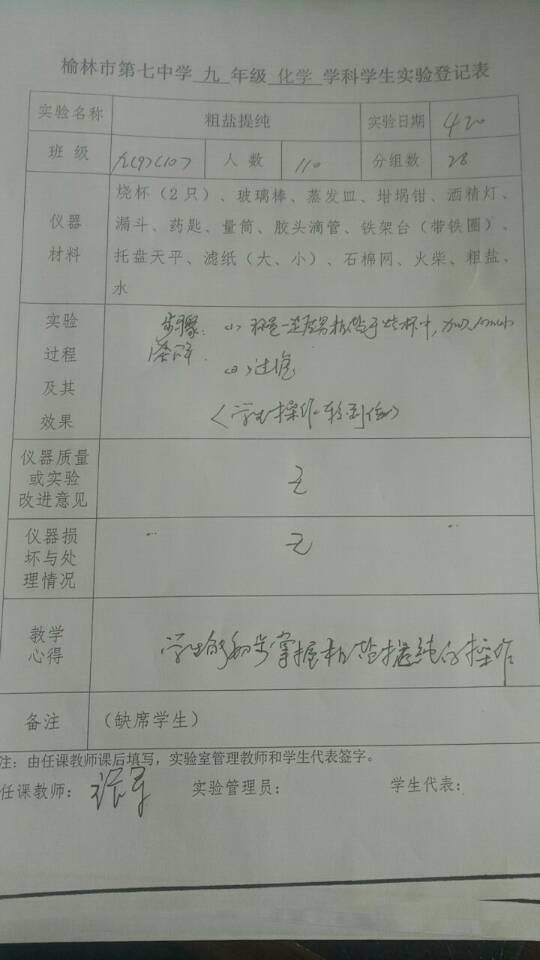 榆林市第七中学 九 年级 化学 学科学生实验登记表
实验名称 粗盐提纯 实验日期 4.20
班 级 九(9)(10) 人 数 110 分组数 28
仪器材料 烧杯（2只）、玻璃棒、蒸发皿、坩埚钳、洒精灯、
漏斗、药匙、量筒、胶头滴管、铁架台（带铁圈）、
托盘天平、滤纸（大、小）、石棉网、火柴、粗盐、
水
实验过程及其效果 步骤: (1) 称一定质量粗盐于烧杯中,加入
溶解. (2) 过滤
(学生操作较到位)
仪器质量或实验改进意见 无
仪器损坏与处理情况 无
教学心得 学生能初步掌握粗盐提纯的操作
备注 （缺席学生）
注：由任课教师课后填写，实验室管理教师和学生代表签字。
任课教师： 实验管理员： 学生代表：